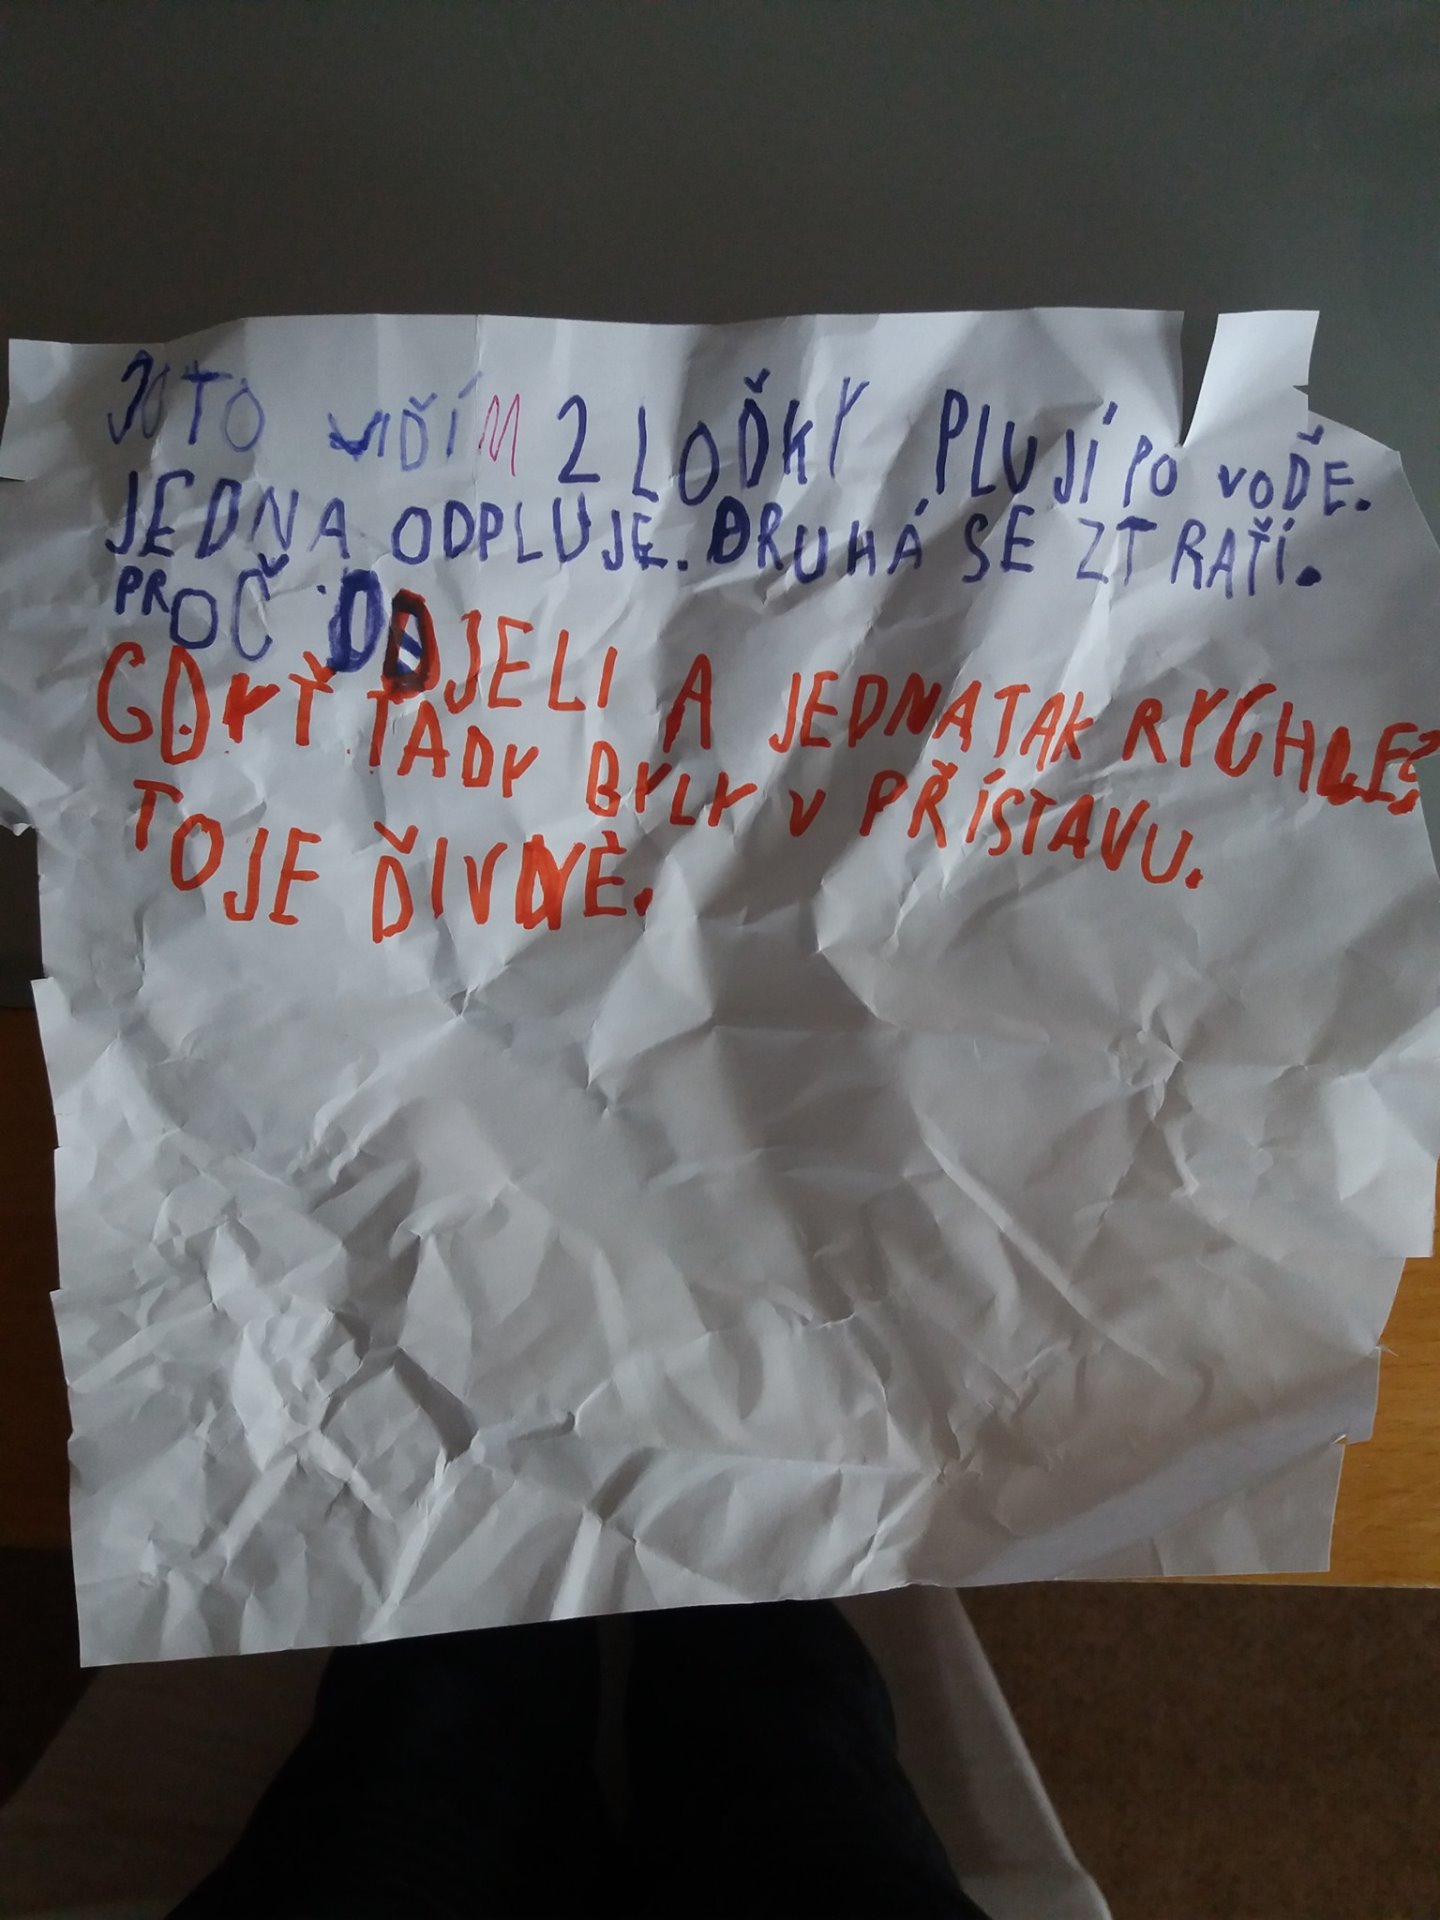 JOTO VIĎÍM 2 LOĎKY PLUJÍ PO VOĎE.
JEDNA ODPLUJE. DRUHÁ SE ZTRAŤÍ.
PROČ ODJELI A JEDNA TAK RYCHLE?
GDYŤ TADY BYLY V PŘÍSTAVU.
TO JE ĎIVNĚ.